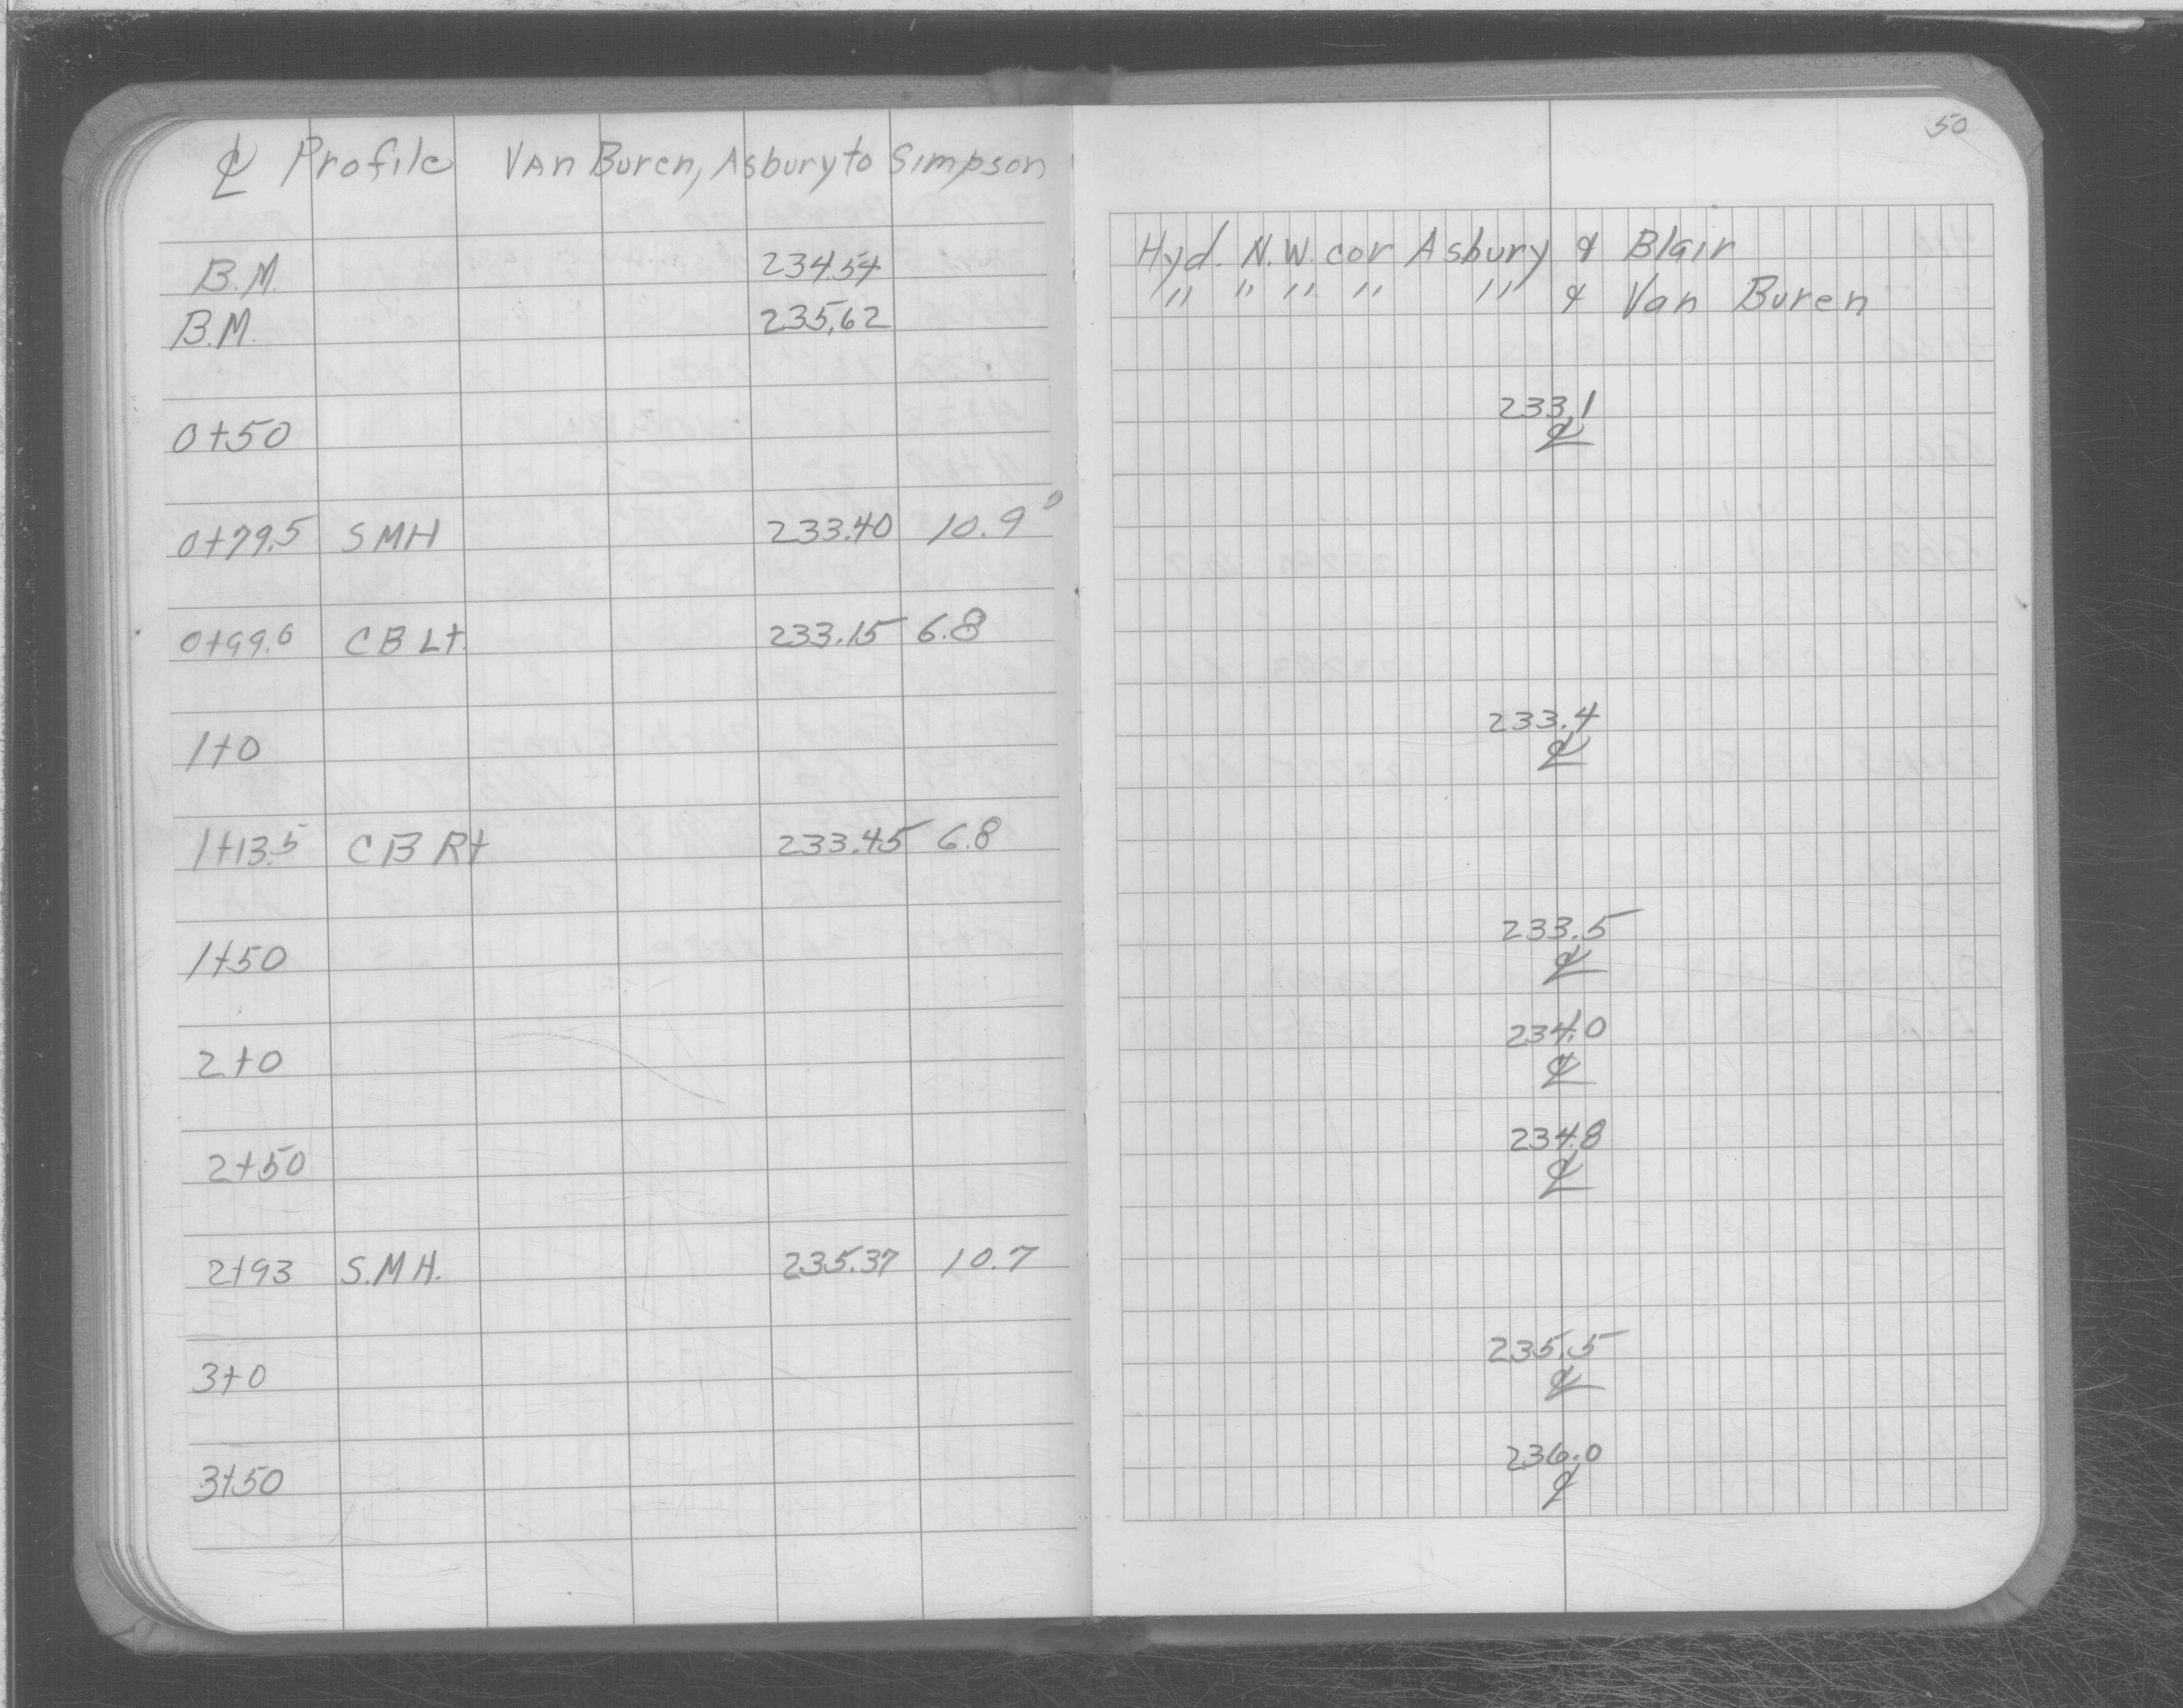 ℄ Profile Van Buren, Asbury to Simpson
50
B.M. 234.54 Hyd. N.W. cor Asbury & Blair
B.M. 235.62 " " " " " & Van Buren
233.1
0+50 ℄
0+79.5 SMH 233.40 10.9'
0+99.6 CB Lt. 233.15 6.8
233.4
1+0 ℄
1+13.5 CB Rt 233.45 6.8
233.5
1+50 ℄
234.0
2+0 ℄
234.8
2+50 ℄
2+93 S.M.H. 235.37 10.7
235.5
3+0 ℄
236.0
3+50 ℄